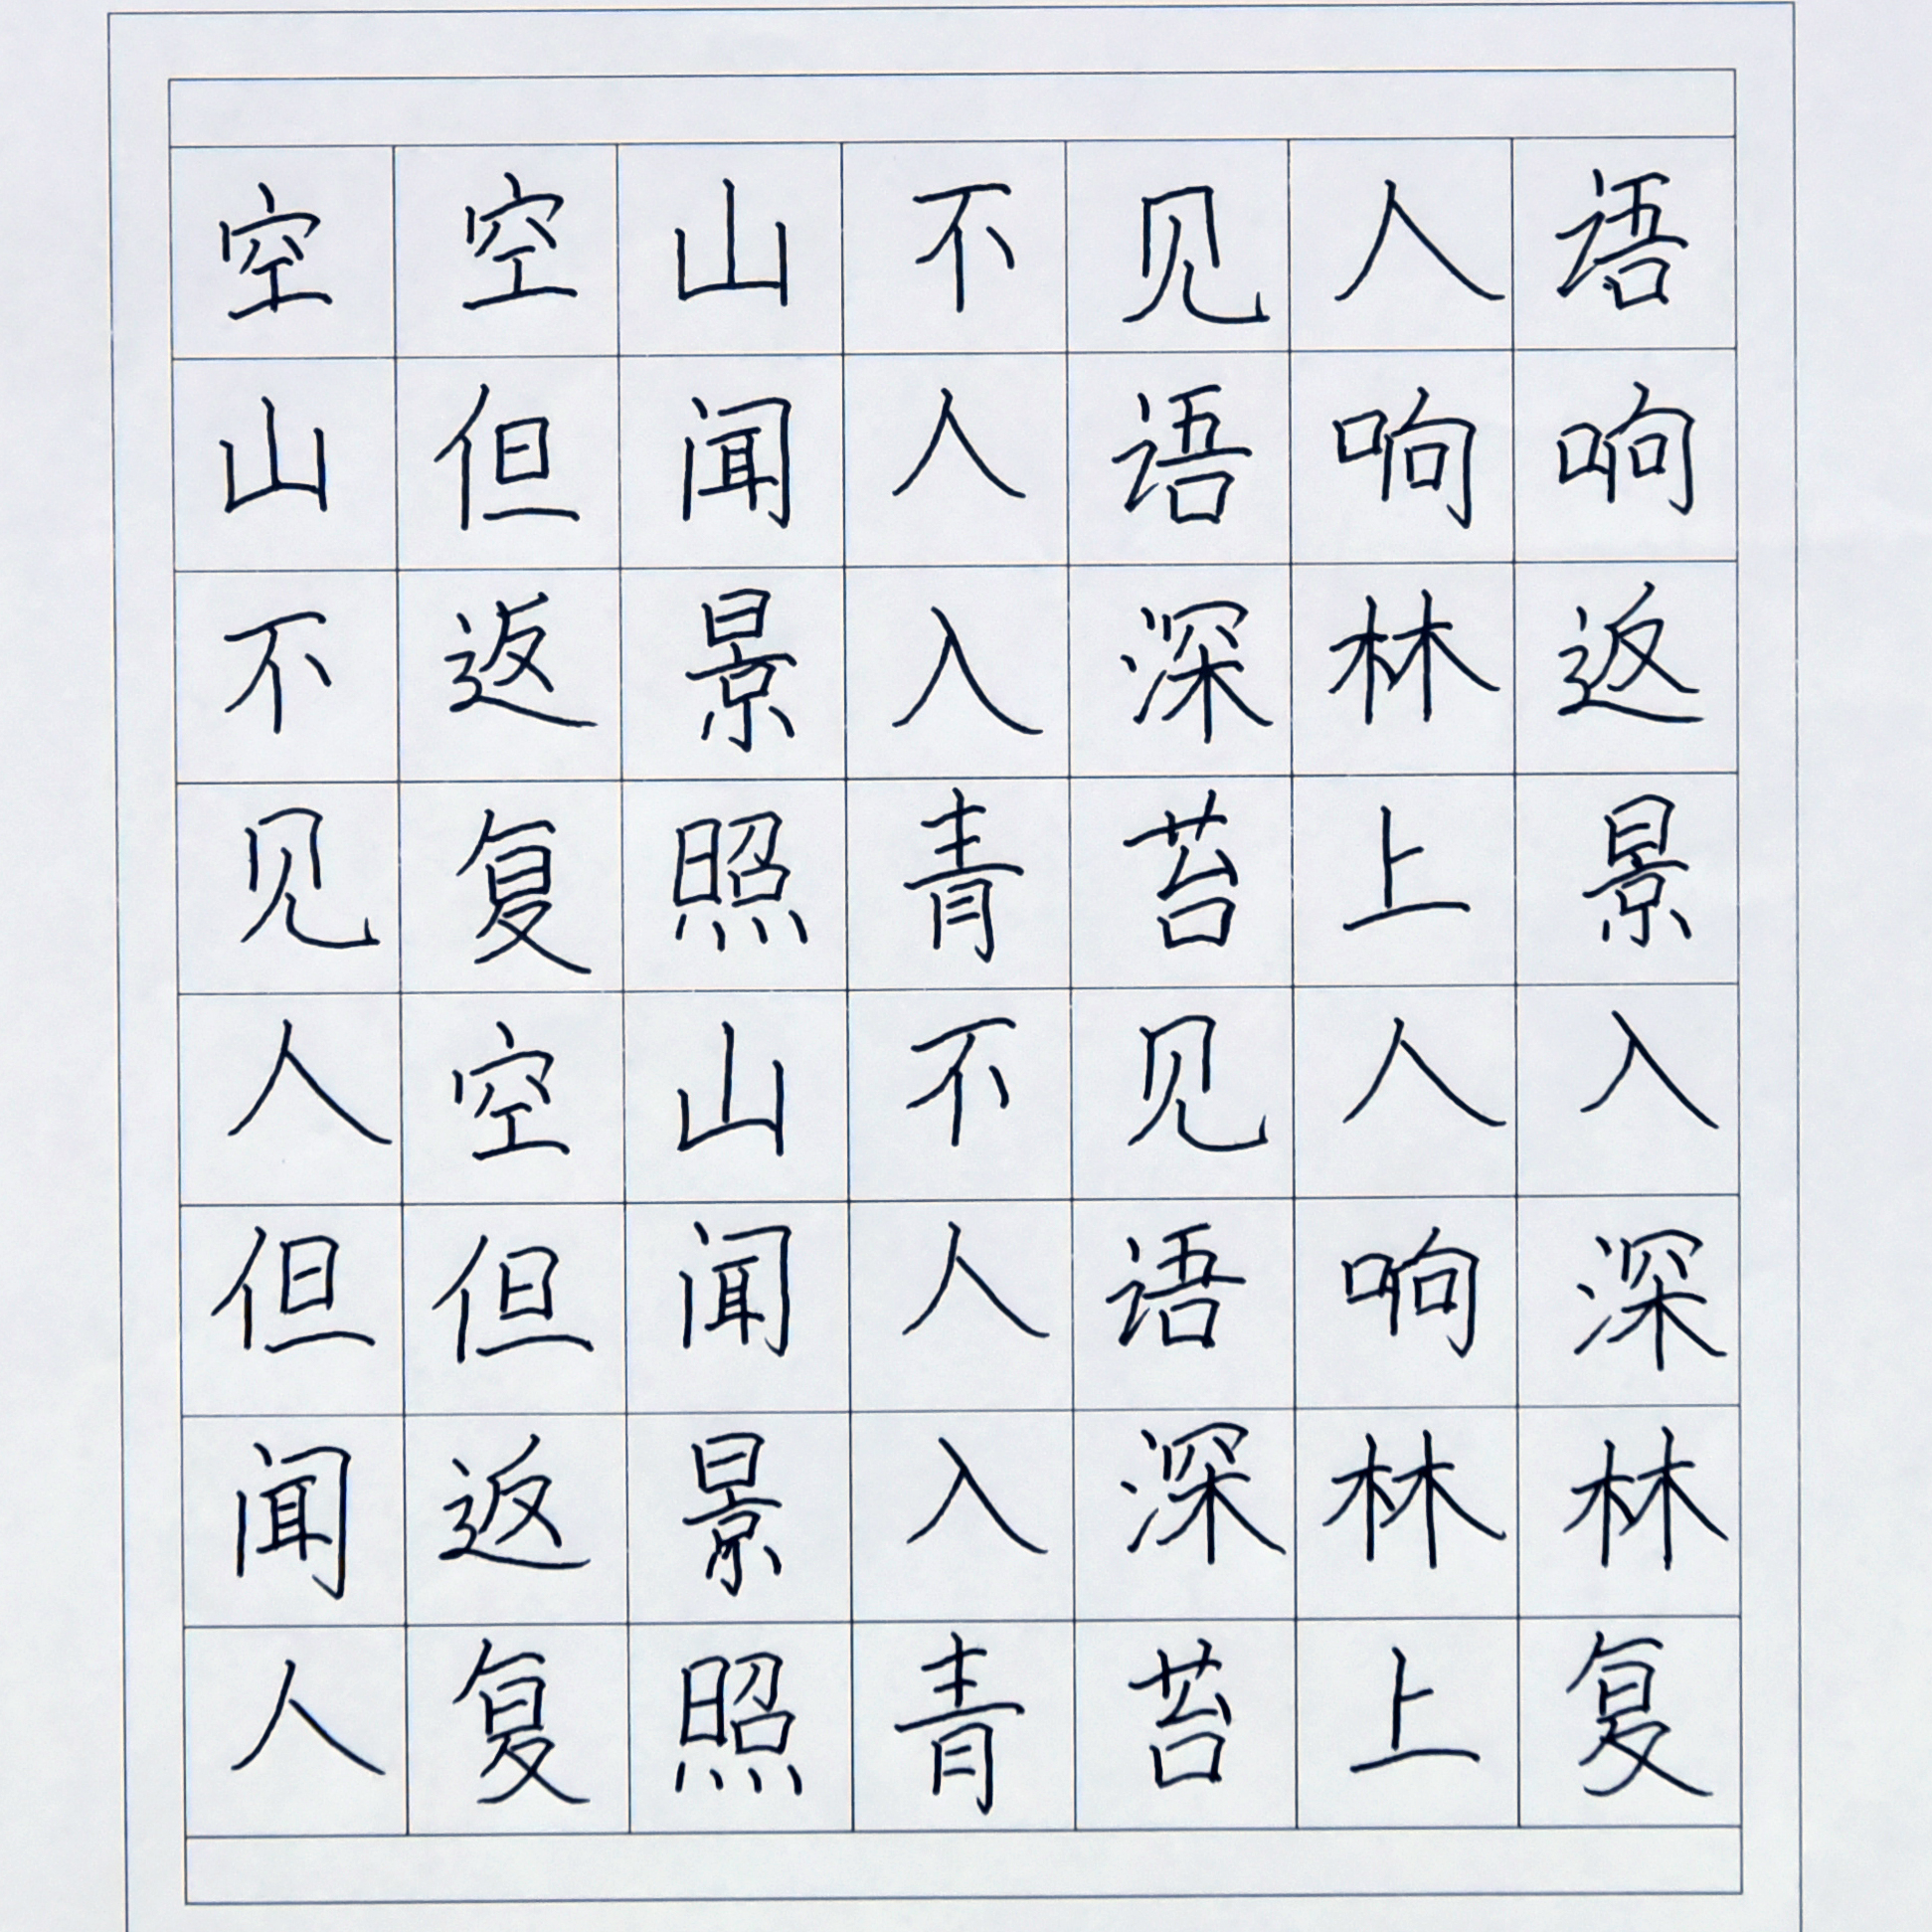 空空山不见人语
山但闻人语响响
不返景入深林返
见复照青苔上景
人空山不见人入
但但闻人语响深
闻返景入深林林
人复照青苔上复